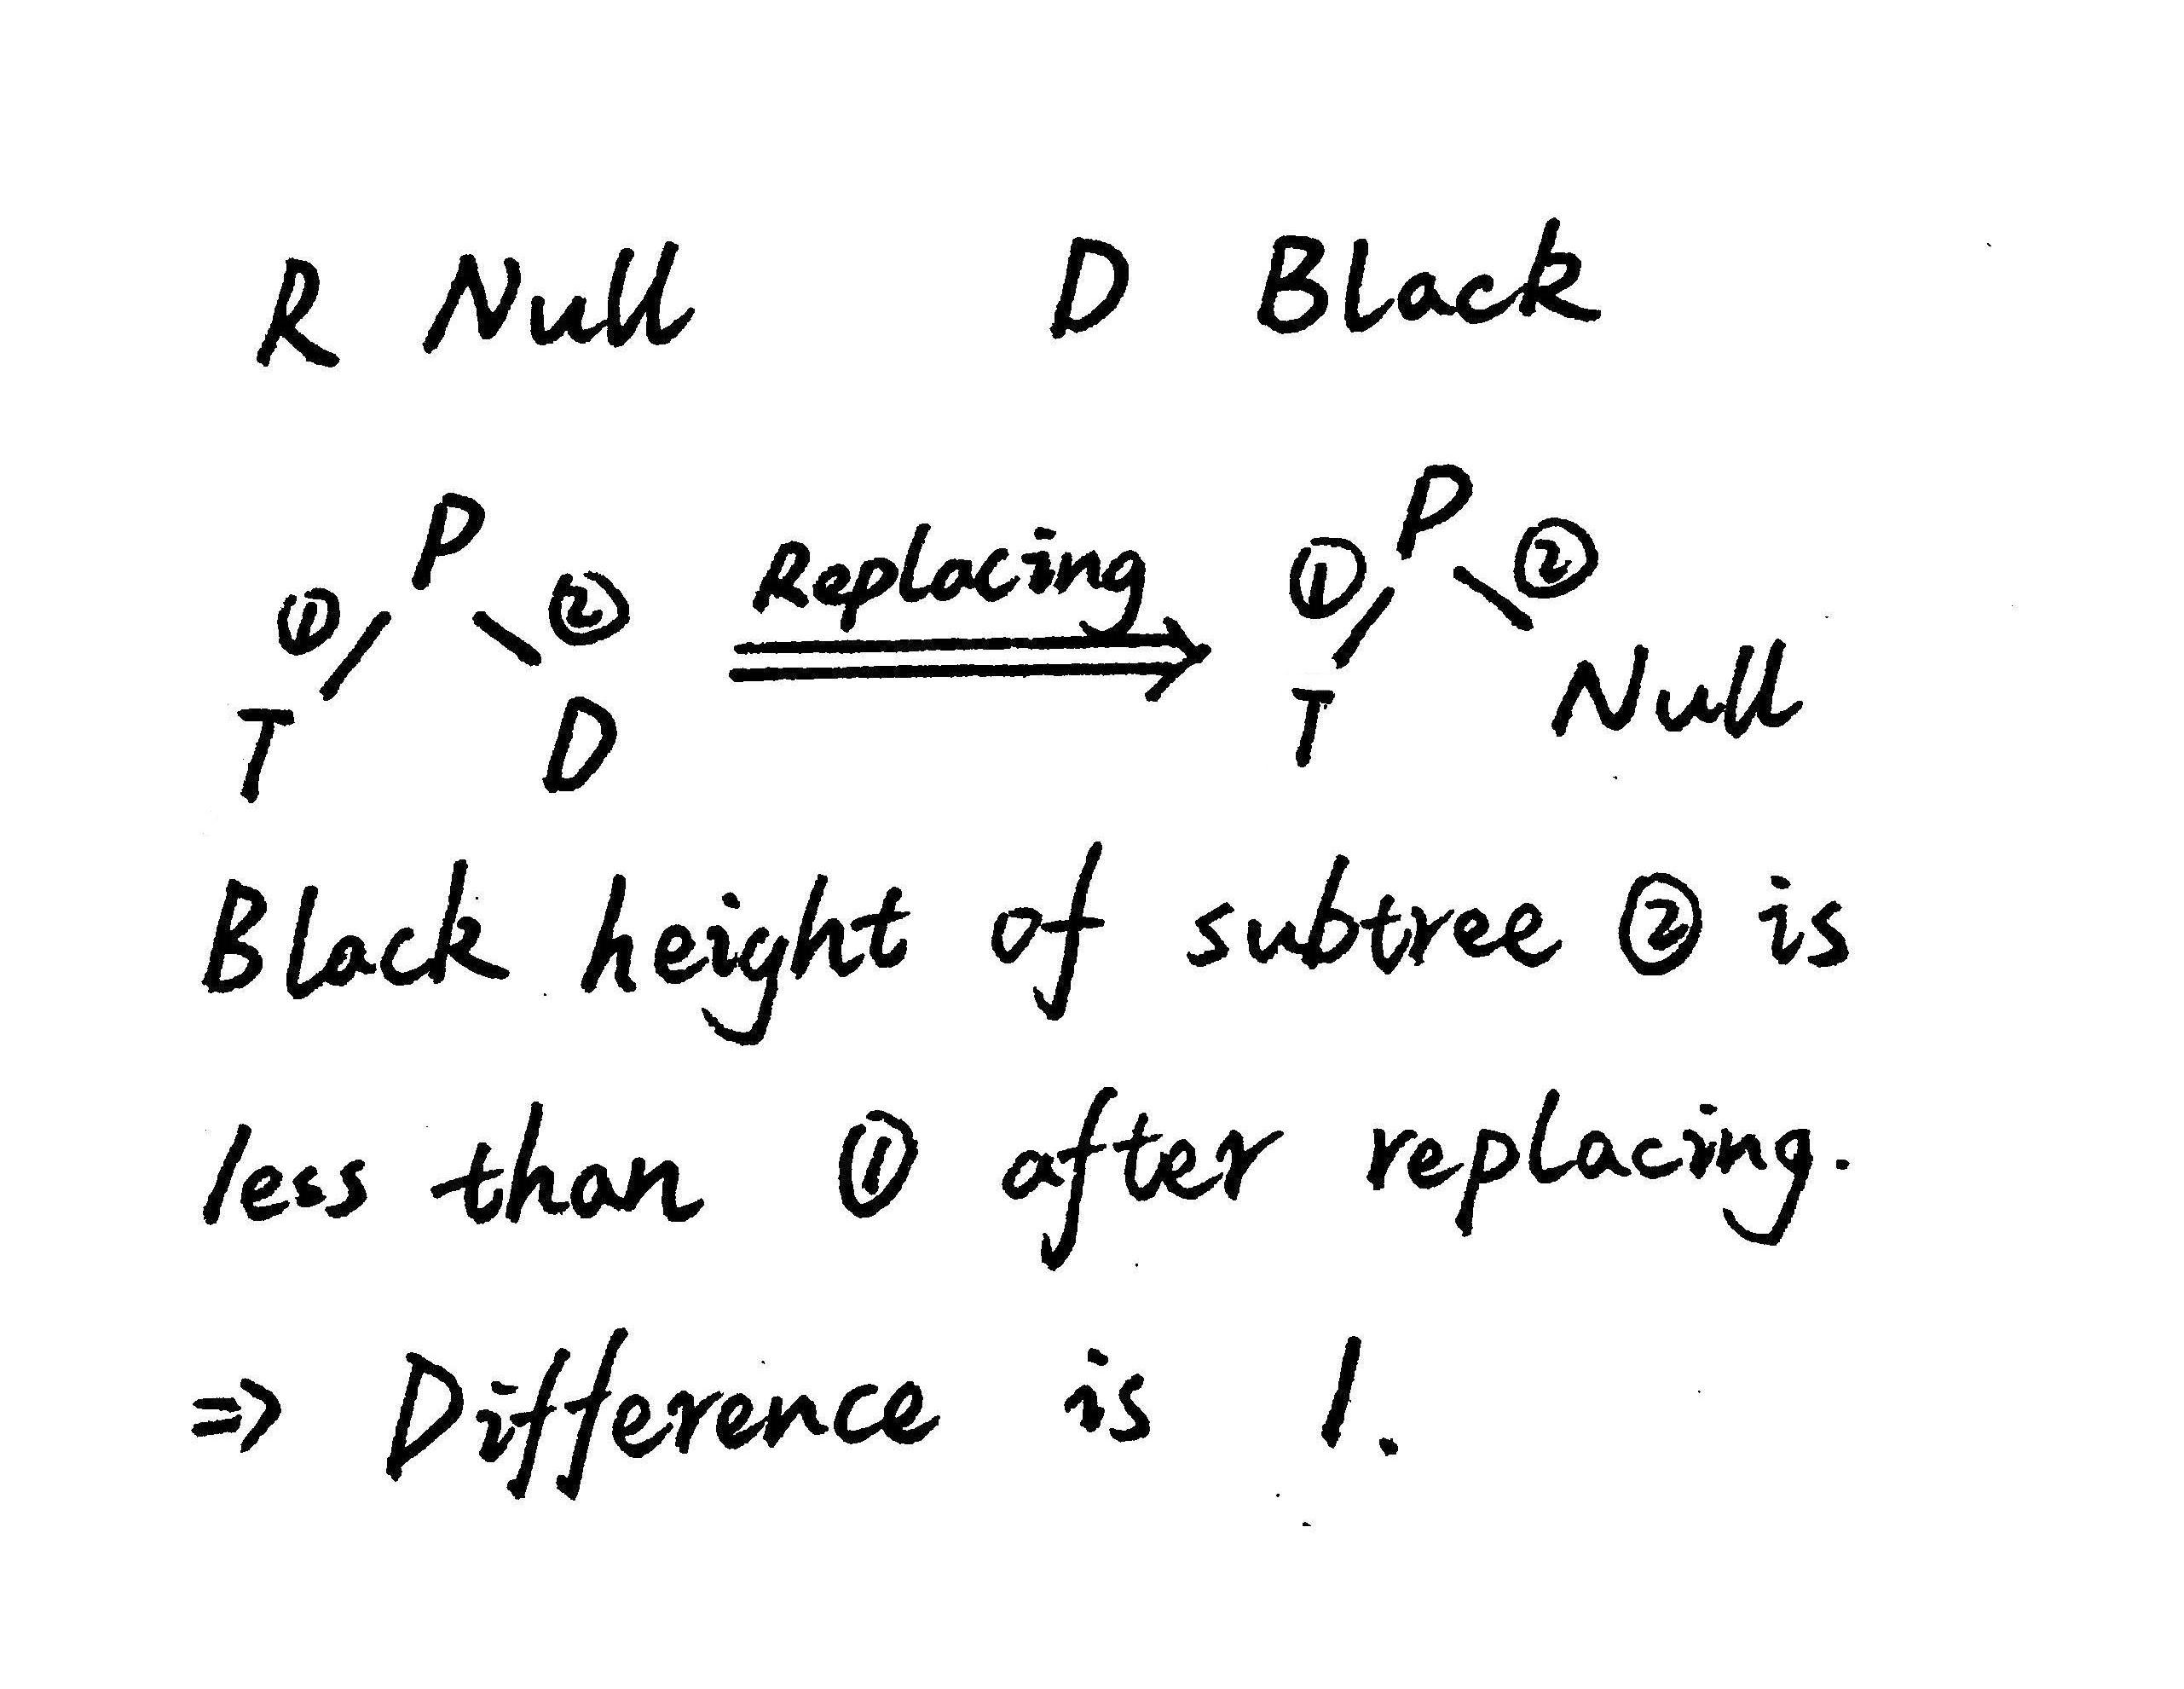 R Null D Black
P P
① ② Replacing ① ②
T D T Null
Black height of subtree ② is
less than ① after replacing.
⇒ Difference is 1.